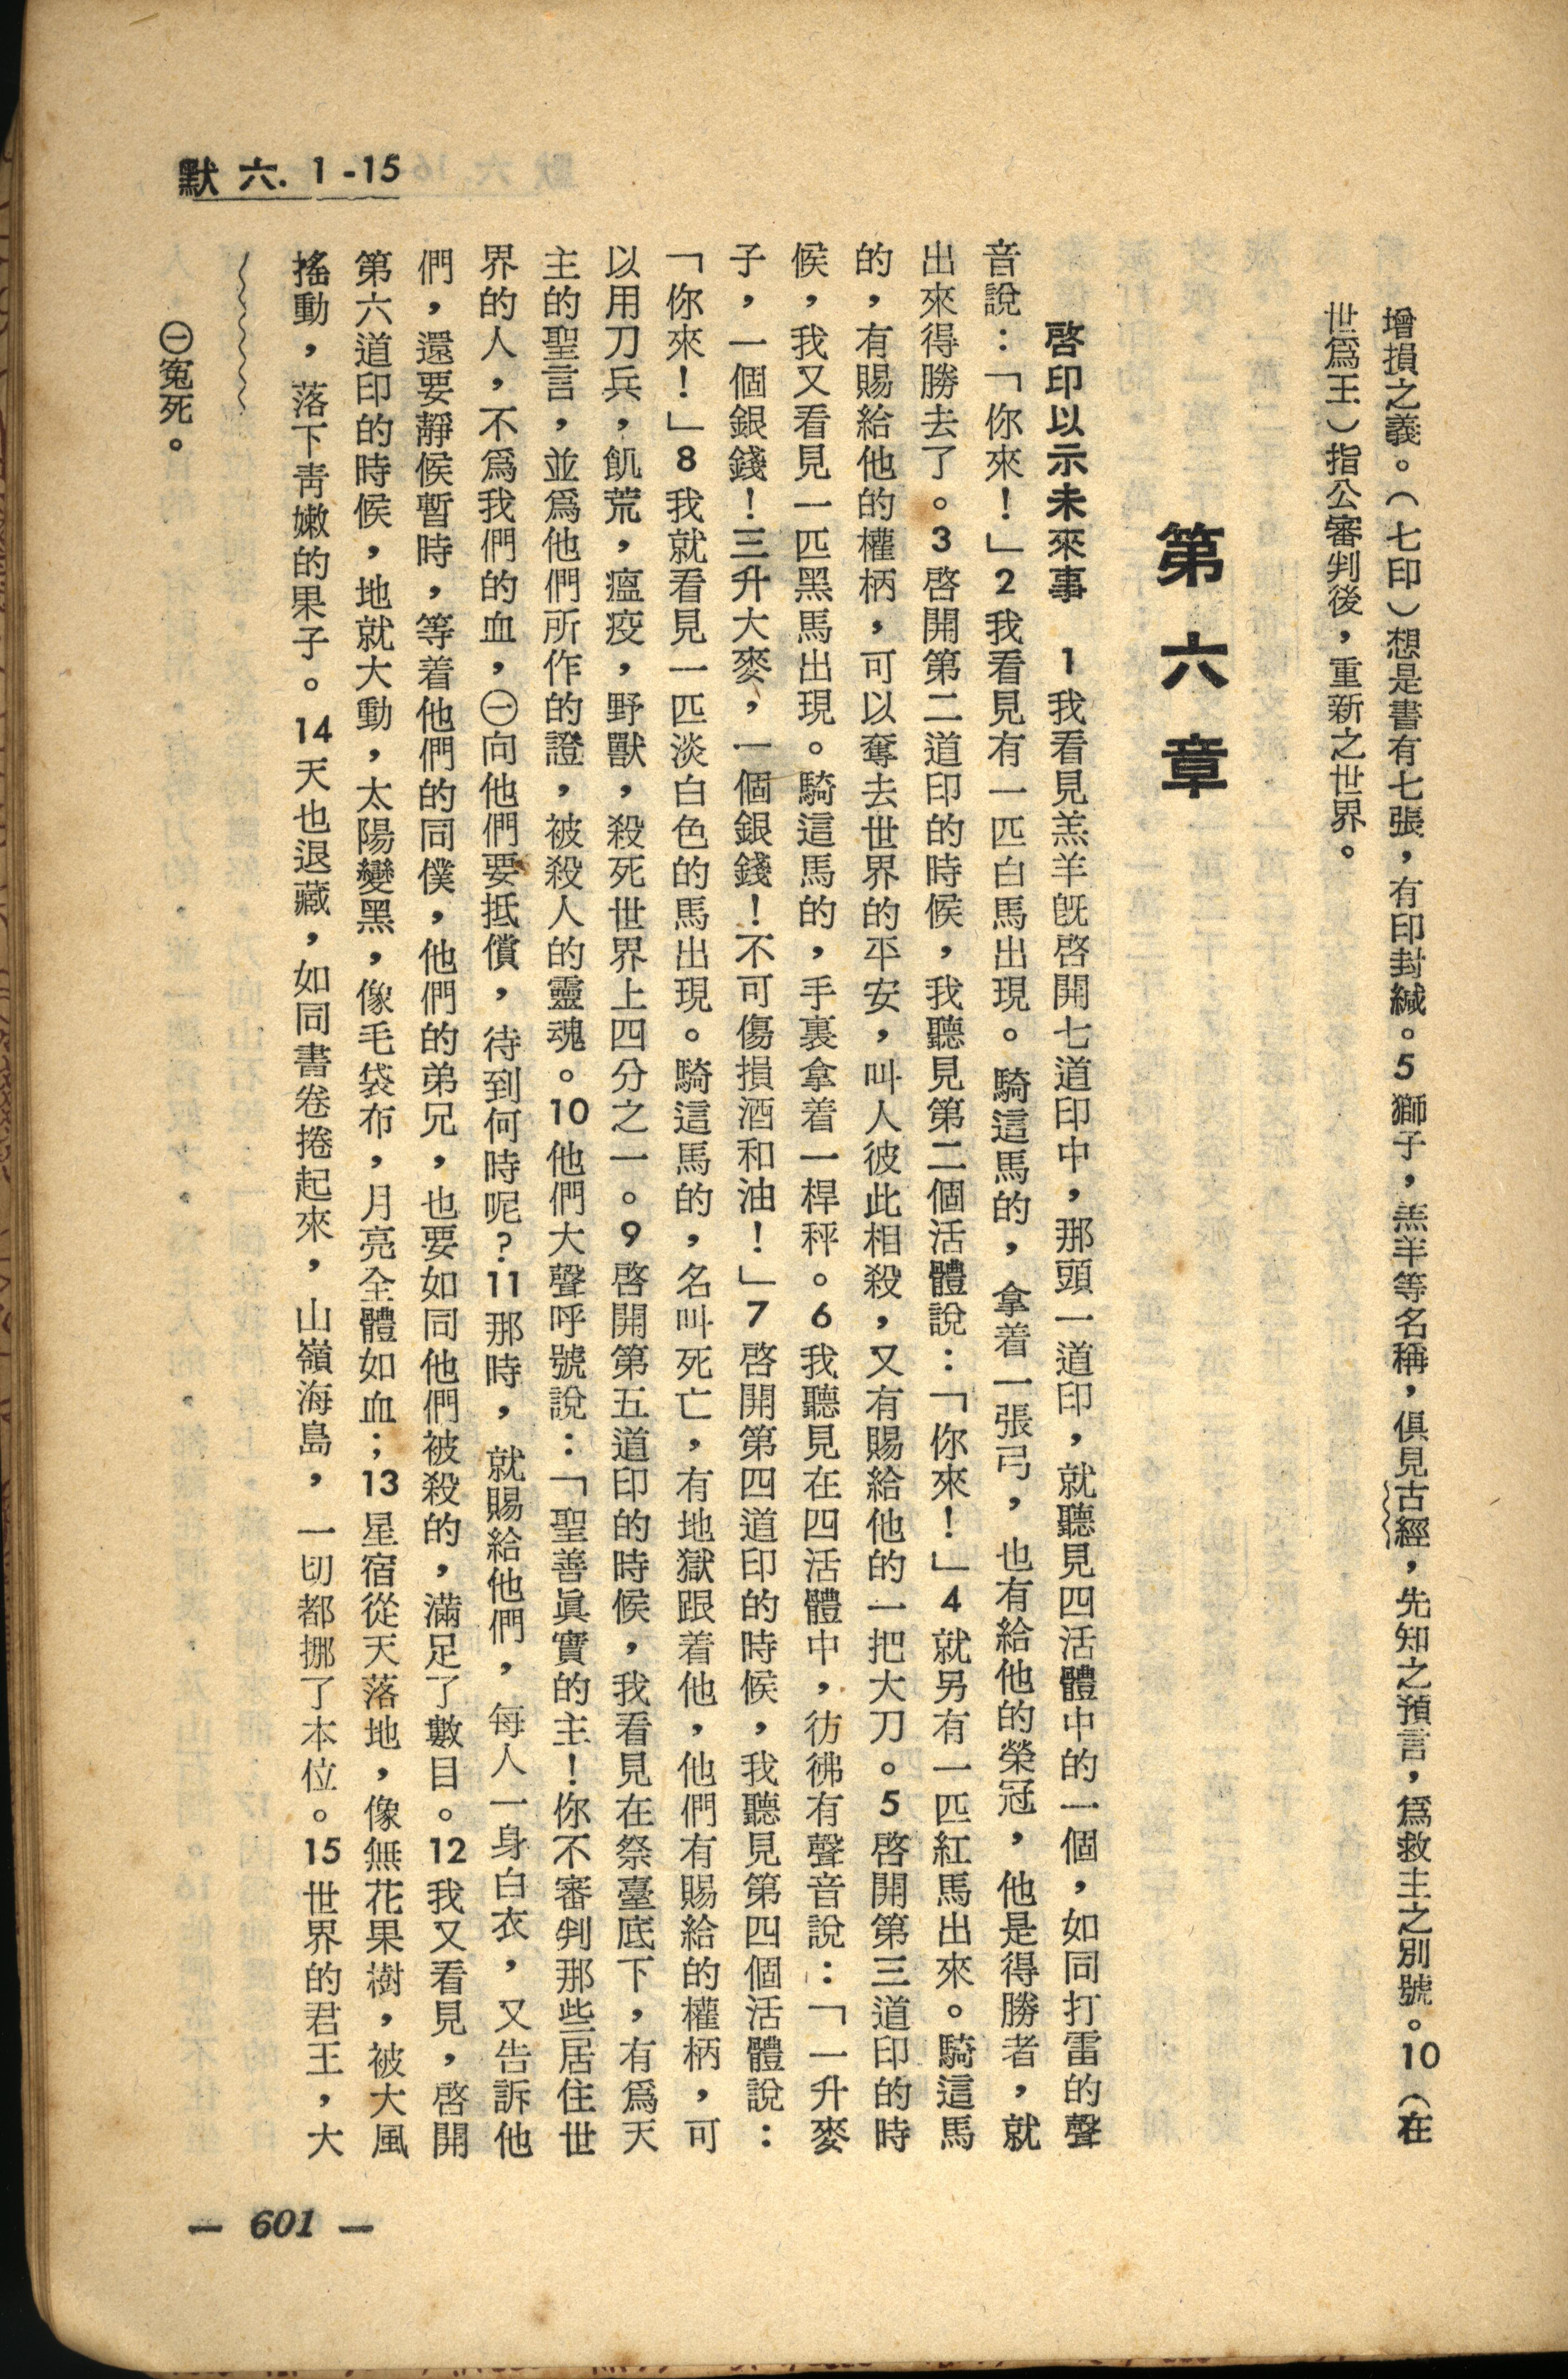 默六. 1-15
增損之義。（七印）想是書有七張，有印封緘。5 獅子，羔羊等名稱，俱見古經，先知之預言，爲救主之別號。10（在
世爲王）指公審判後，重新之世界。
第六章
啓印以示未來事　1 我看見羔羊旣啓開七道印中，那頭一道印，就聽見四活體中的一個，如同打雷的聲
音說：「你來！」2 我看見有一匹白馬出現。騎這馬的，拿着一張弓，也有給他的榮冠，他是得勝者，就
出來得勝去了。3 啓開第二道印的時候，我聽見第二個活體說：「你來！」4 就另有一匹紅馬出來。騎這馬
的，有賜給他的權柄，可以奪去世界的平安，叫人彼此相殺，又有賜給他的一把大刀。5 啓開第三道印的時
候，我又看見一匹黑馬出現。騎這馬的，手裏拿着一桿秤。6 我聽見在四活體中，彷彿有聲音說：「一升麥
子，一個銀錢！三升大麥，一個銀錢！不可傷損酒和油！」7 啓開第四道印的時候，我聽見第四個活體說：
「你來！」8 我就看見一匹淡白色的馬出現。騎這馬的，名叫死亡，有地獄跟着他，他們有賜給的權柄，可
以用刀兵，飢荒，瘟疫，野獸，殺死世界上四分之一。9 啓開第五道印的時候，我看見在祭臺底下，有爲天
主的聖言，並爲他們所作的證，被殺人的靈魂。10 他們大聲呼號說：「聖善眞實的主！你不審判那些居住世
界的人，不爲我們的血，㊀向他們要抵償，待到何時呢？11 那時，就賜給他們，每人一身白衣，又告訴他
們，還要靜候暫時，等着他們的同僕，他們的弟兄，也要如同他們被殺的，滿足了數目。12 我又看見，啓開
第六道印的時候，地就大動，太陽變黑，像毛袋布，月亮全體如血；13 星宿從天落地，像無花果樹，被大風
搖動，落下靑嫩的果子。14 天也退藏，如同書卷捲起來，山嶺海島，一切都挪了本位。15 世界的君王，大
㊀冤死。
— 601 —